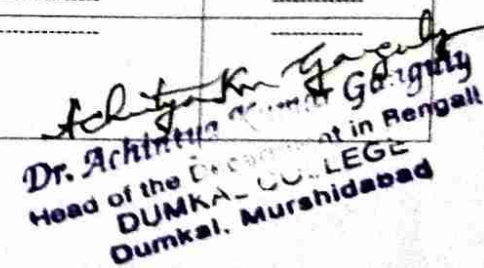 Achintya Kr Ganguly
Dr. Achintya Kumar Ganguly
Head of the Department in Bengali
DUMKAL COLLEGE
Dumkal, Murshidabad